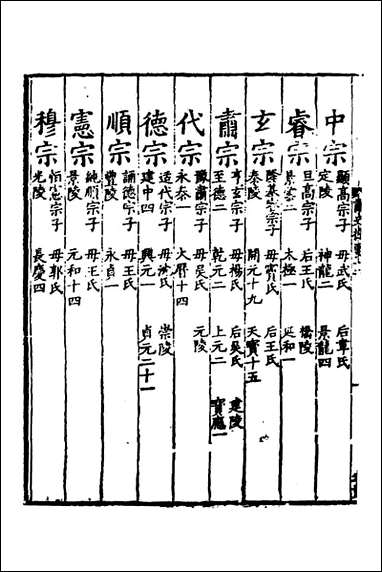 中宗
顯高宗子 母武氏 后韋氏
定陵 神龍二 景龍四
睿宗
旦高宗子 后王氏 橋陵
景雲二 太極一 延和一
玄宗
隆基睿宗子 母竇氏 后王氏
泰陵 開元十九 天寶十五
肅宗
亨玄宗子 母楊氏 后吳氏 建陵
至德二 乾元二 上元二 寶應一
代宗
豫肅宗子 母吳氏 元陵
永泰一 大曆十四
德宗
适代宗子 母沈氏 崇陵
建中四 興元一 貞元二十一
順宗
誦德宗子 母王氏
豐陵 永貞一
憲宗
純順宗子 母王氏
景陵 元和十四
穆宗
恒憲宗子 母郭氏
光陵 長慶四